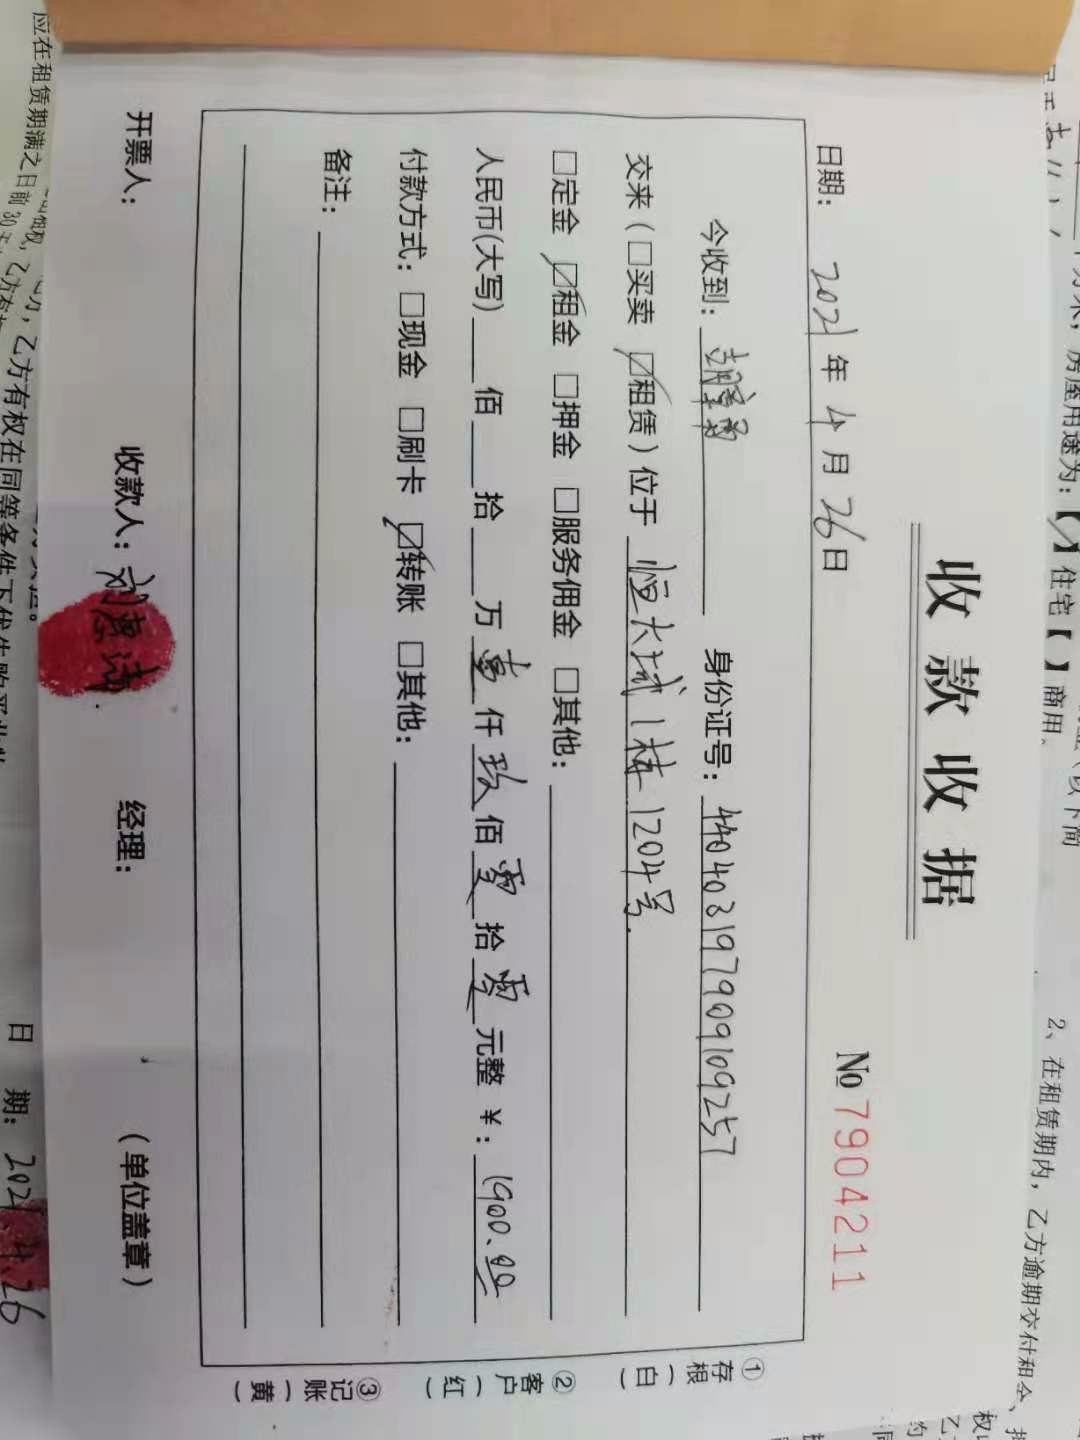 收款收据
№ 7904211
日期： 2021 年 4 月 26 日
今收到： 身份证号：440403197909109257
交来（□买卖 ☑租赁）位于 恒大城1栋1204号.
□定金 ☑租金 □押金 □服务佣金 □其他：
人民币(大写) 佰 拾 万 壹 仟 玖 佰 零 拾 零 元整 ¥：1900.00
付款方式：□现金 □刷卡 ☑转账 □其他：
备注：
开票人： 收款人： 经理： （单位盖章）
①存根（白） ②客户（红） ③记账（黄）
房屋用途为：【✓】住宅【 】商用。
2、在租赁期内，乙方逾期交付租金、
应在租赁期满之日前30天
乙方有权在同等条件下优先购买
日 期：2021.4.26